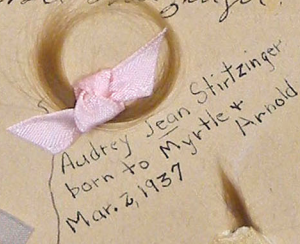 Audrey Jean Stirtzinger
born to Myrtle & Arnold
Mar. 2, 1937